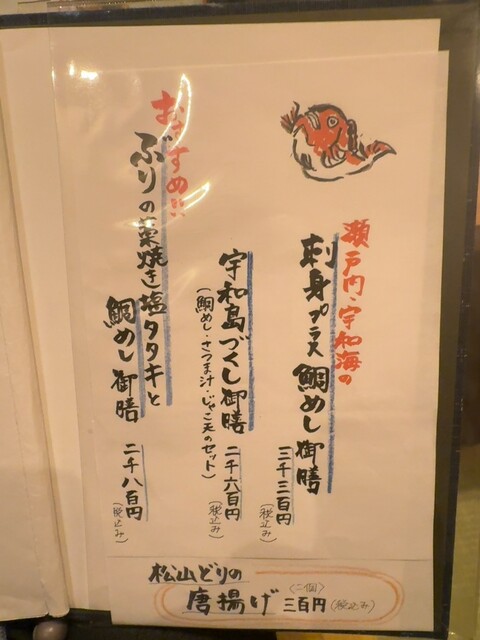 瀬戸内・宇和海の
刺身プラス鯛めし御膳
三千三百円
(税込み)
宇和島づくし御膳
(鯛めし・さつま汁・じゃこ天のセット)
二千六百円
(税込み)
おすすめ!!
ぶりの藁焼き塩タタキと
鯛めし御膳
二千八百円
(税込み)
松山どりの
唐揚げ〈二個〉三百円(税込み)